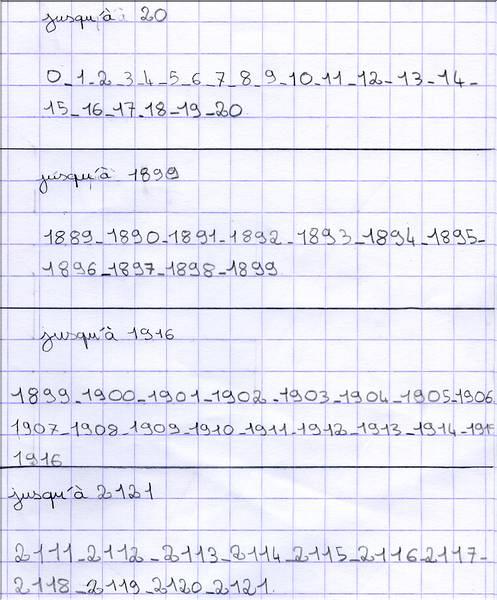 jusqu'à: 20
0_1_2_3_4_5_6_7_8_9_10_11_12_13_14_
15_16_17_18_19_20
jusqu'à 1899
1889_1890_1891_1892_1893_1894_1895_
1896_1897_1898_1899
jusqu'à 1916
1899_1900_1901_1902_1903_1904_1905_1906
1907_1908_1909_1910_1911_1912_1913_1914_191
1916
jusqu'à 2121
2111_2112_2113_2114_2115_2116_2117_
2118_2119_2120_2121.